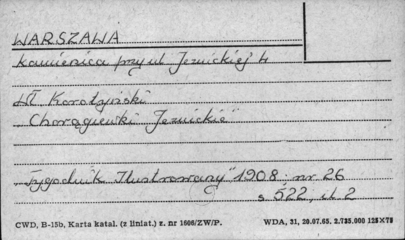 WARSZAWA
kamienica przy ul. Jezuickiej 4
Wł Korotyński
"Chorągiewki Jezuickie"
"Tygodnik Ilustrowany" 1908 nr 26
s 522, il. 2
CWD, B-15b, Karta katal. (z liniat.) z. nr 1606/ZW/P.
WDA, 31, 20.07.65. 2.735.000 125X75